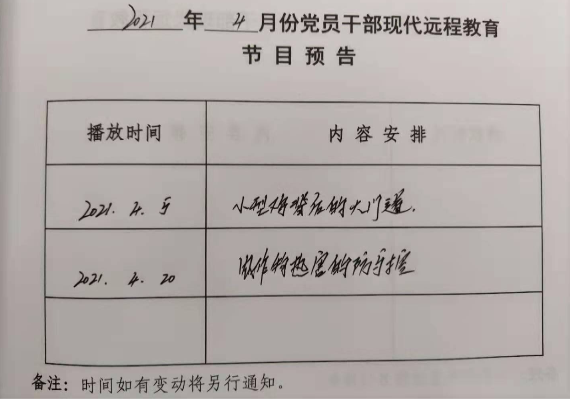 2021 年 4 月份党员干部现代远程教育
节目预告
播放时间 内容安排
2021. 4. 5 小型 背后的大门道.
2021. 4. 20 作物 害的防
备注：时间如有变动将另行通知。